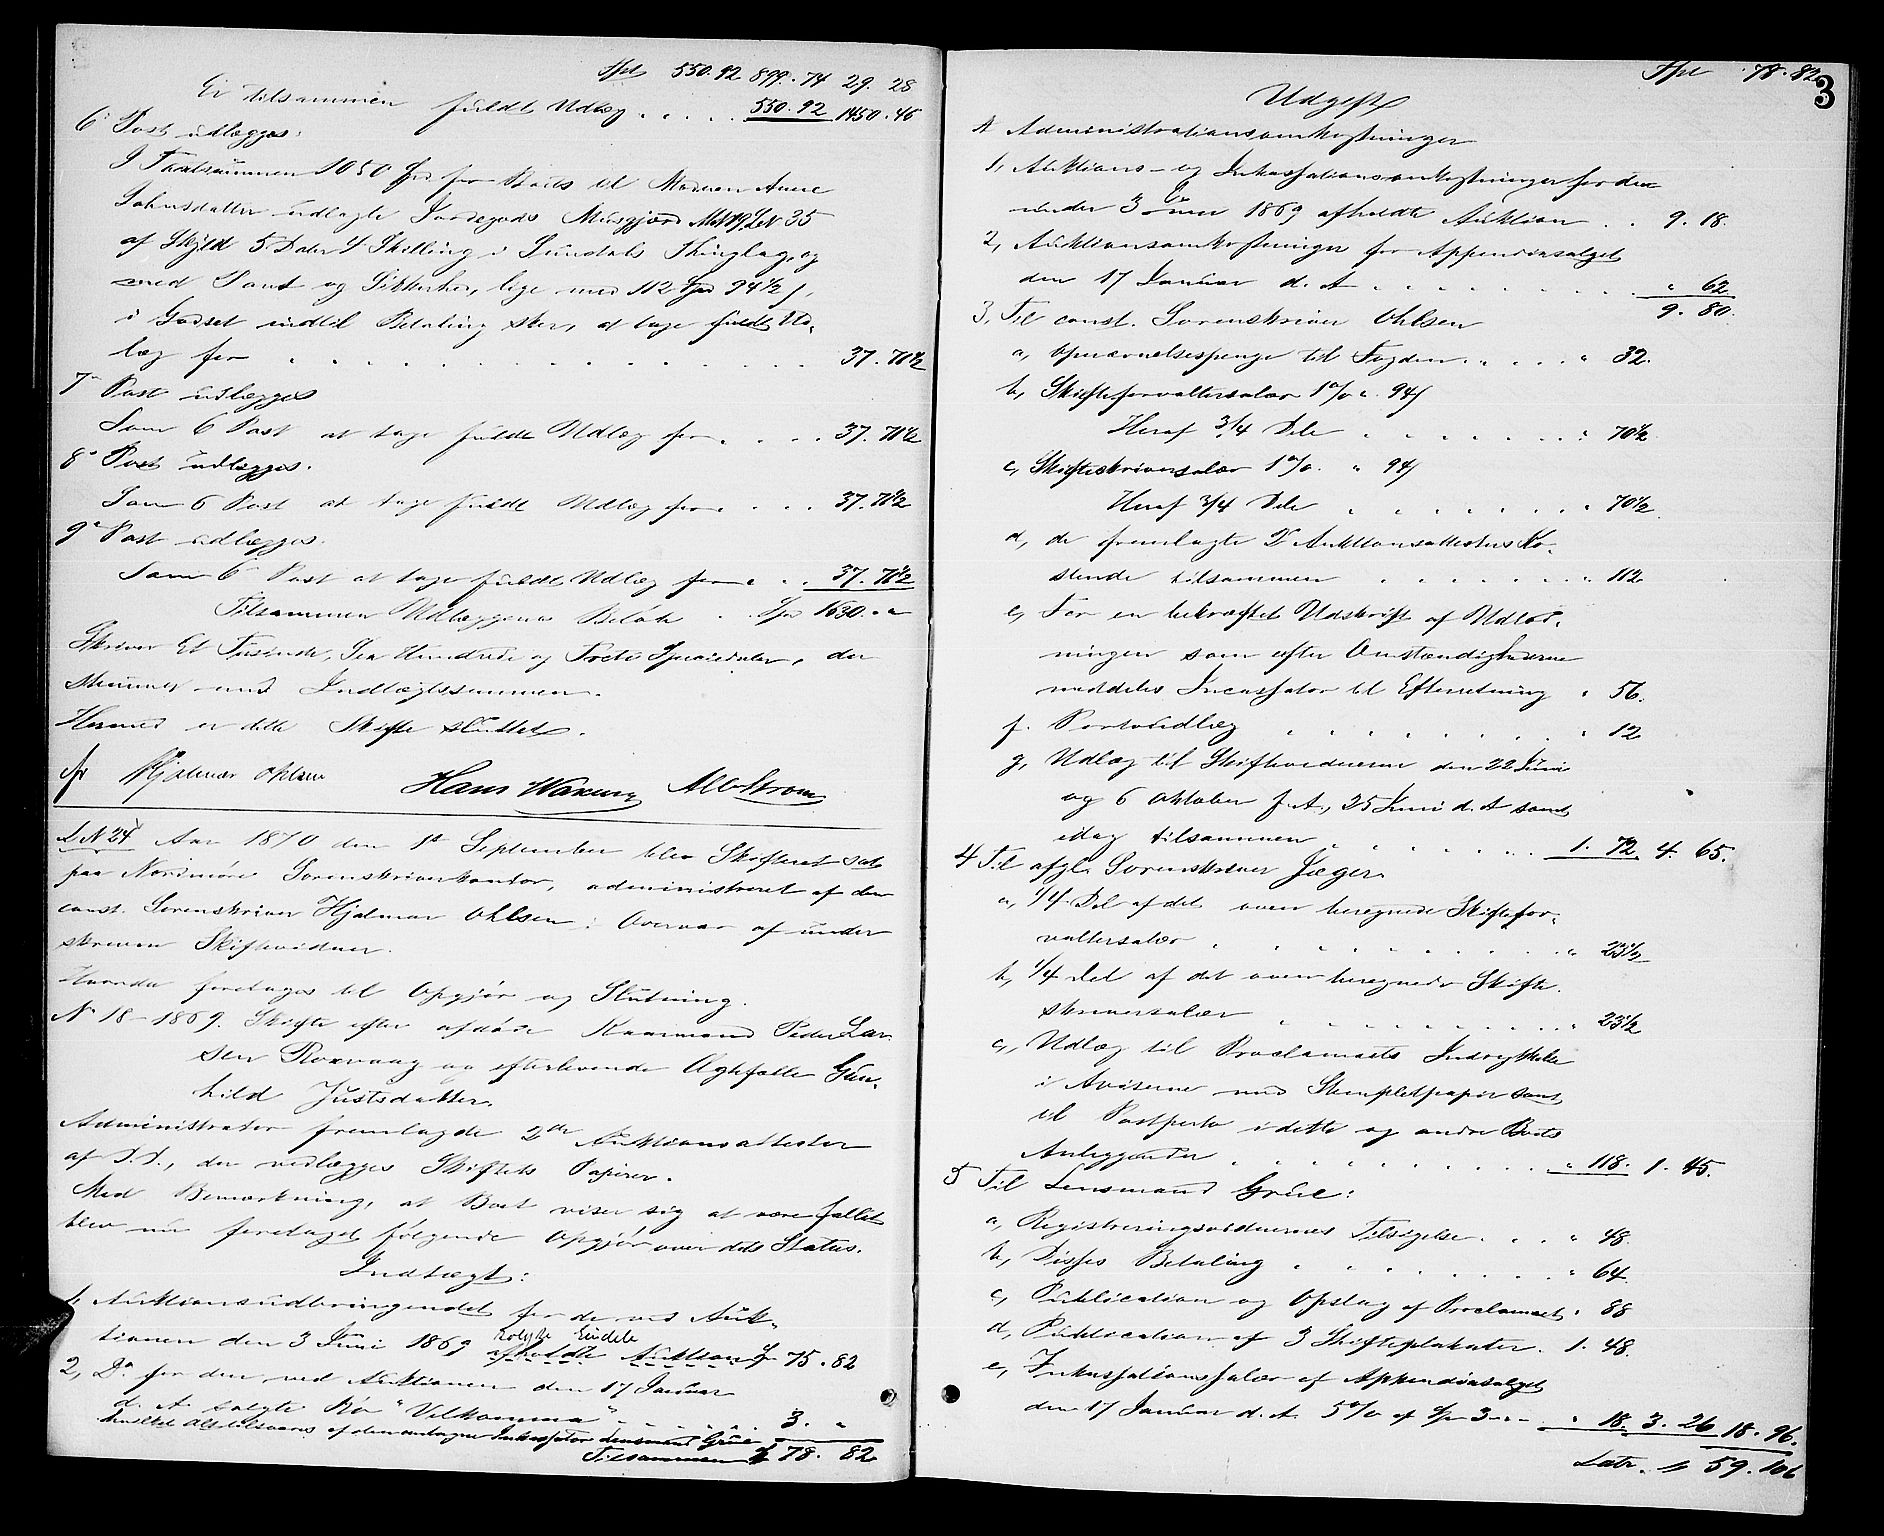 Spd 550.92 899.74 29.28
Er tilsammen fuldt Udlæg . . . . . 550.92 1450.46
6- Post udlægges:
I Taxtsummen 1050 Spd for Boets til Madmen Anne
Johnsdatter udlagte Jordegods Musgjerd Mat N 19 L N 35
af Skyld 5 Daler 4 Skilling i Sundals Thinglag, og
med Sams og Sikkerhed, lige med 112 Spd 94½ s,
i Godset indtil Betaling sker, at tage fuldt Ud-
læg for . . . . . . . . 37. 70½
7- Post udlægges
Som 6 Post at tage fuldt Udlæg for . . . . 37. 70½
8- Post udlægges.
Som 6 Post at tage fuldt Udlæg for . . . . 37. 70½
9- Post udlægges.
Som 6 Post at tage fuldt Udlæg for . . . 37. 70½
Tilsammen Udlæggenes Beløb . . Spd 1630. "
Skriver Et Tusinde, Sex Hundrede og Tredive Speciedaler, der
stemmer med Indtægtssummen.
Hermed er dette Skifte sluttet.
Hjalmar Ohlsen Hans Waxeng
L N 24 Aar 1870 den 1st September blev Skifteret sat
paa Nordmøre Sorenskriverkontor, administreret af den
const. Sorenskriver Hjalmar Ohlsen i Overvær af under
skrevne Skiftevidner.
Hvorda foretages til Opgjør og Slutning.
N 18 - 1869. Skifte efter afdøde Kaarmand Peder Lar
sen Roxvaag og efterlevende Ægtefælle Gun-
hild Justsdatter.
Administrator fremlagde 2de Auktionsattester
af D.D., der vedlægges Skiftets Papirer.
Med Bemærkning, at Boet viser sig at være fallit
blev nu foretaget følgende Opgjør over dets Status.
Indtægt:
1, Auktionsudbringendet for de ved Auk-
tionen den 3 Juni 1869 solgte Eiendele
afholdte Auktion Spd 75. 82
2, Do for den ved Auktionen den 17 Januar
d. A. solgte Ko "Velkomma" . . . . . 3. "
hvilket Alt tilsvares af den antagne Inkassator Lensmand Grüe
Tilsammen Spd 78. 82
Spd 78. 82
3
Udgift
A Administrationsomkostninger
1, Auktions- og Inkassationsomkostninger for den
under 3 Juni 1869 afholdte Auktion . . 9. 18.
2, Auktionsomkostninger for Appendixsalget
den 17 Januar d. A . . . . . . . . " 62
9. 80.
3, Til const. Sorenskriver Ohlsen
a, Opnævnelsespenge til Fogden . . . . " 32.
b, Skifteforvaltersalær 1 % " 94 s
Heraf 3/4 Dele . . . . . . . " 70½
c, Skifteskriversalær 1 %. " 94 s
Heraf 3/4 Dele . . . . . . . " 70½
d, de fremlagte 2de Auktionsattesters Ko-
stende tilsammen . . . . . . . " 112
e, For en bekræftet Udskrift af Udlod-
ningen som efter Omstændighederne
meddeles Incassator til Efterretning " 56.
f. Portoudlæg . . . . . . . . " 12
g, Udlæg til Skiftevidnerne den 22 Juni
og 6 Oktober f. A., 25 Juni d. A samt
idag tilsammen . . . . . . 1. 72 4. 65.
4 Til afgl. Sorenskriver Jæger.
a, 1/4 Del af det oven beregnede Skiftefor-
valtersalær . . . . . . . . . " 23½
b, 1/4 Del af det oven beregnede Skifte
skriversalær . . . . . . . . . " 23½
c, Udlæg til Proclamaets Indrykkelse
i Aviserne med Stempletpapir samt
til Postporto i dette og andre Boets
Anliggender . . . . . . . . . " 118. 1. 45.
5 Til Lensmand Grüe:
a, Registreringsvidnernes Tilsigelse . . . " 48.
b, Disses Betaling . . . . . . . " 64
c, Publication og Opslag af Proclamaet " 88
d, Publication af 3 Skifteplakater . 1. 48.
e, Inkassationssalær af Appendixsalget
den 17 Januar d. A. 5 % af Spd 3-"- " 18. 3. 26 18. 96.
Latr. Spd 59. 106